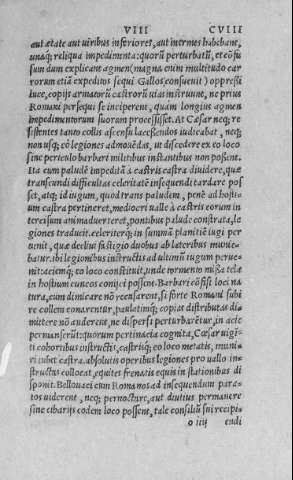 VIII CVIII
aut ætate aut uiribus inferiores, aut inermes habebant,
unaq; reliqua impedimenta: quorũ perturbatũ, et cõfu
sum dum explicant agmen (magna enim multitudo car
rorum etiã expeditos sequi Gallos consueuit) oppressi
luce, copijs armatorũ castrorũ suas instruunt, ne prius
Romani persequi se inciperent, quàm longius agmen
impedimentorum suorum processisset. At Cæsar neq; re
sistentes tanto collis ascensu lacessendos iudicabat, neq;
non usq; eò legiones admouẽdas, ut discedere ex eo loco
sine periculo barbari militibus instantibus non possent.
Ita cum paludẽ impeditã à castris castra diuidere, quæ
transeundi difficultas celeritatẽ insequendi tardare pos
set, atq; id iugum, quod trans paludem, penè ad hosti-
um castra pertineret, mediocri ualle à castris eorum in
tercisum animaduerteret, pontibus palude constrata, le
giones traducit. celeriterq; in summã planitiẽ iugi per
uenit, quæ decliui fastigio duobus ab lateribus munie-
batur. ibi legionibus instructis ad ultimũ iugum perue-
nit: aciemq; eo loco constituit, unde tormento missa tela
in hostium cuneos conijci possent. Barbari cõfisi loci na
tura, cum dimicare nõ recusarent, si forte Romani subi
re collem conarentur, paulatimq; copias distributas di-
mittere nõ auderent, ne dispersi perturbarẽtur, in acie
permanserũt: quorum pertinacia cognita, Cæsar uigi-
ti cohortibus instructis, castrisq; eo loco metatis, muni-
ri iubet castra. absolutis operibus legiones pro uallo in-
structas collocat, equites frenatis equis in stationibus di
sponit. Bellouaci cum Romanos ad insequendum para-
tos uiderent, neq; pernoctare, aut diutius permanere
sine cibarijs eodem loco possent, tale consiliũ sui recipi-
o iiij endi